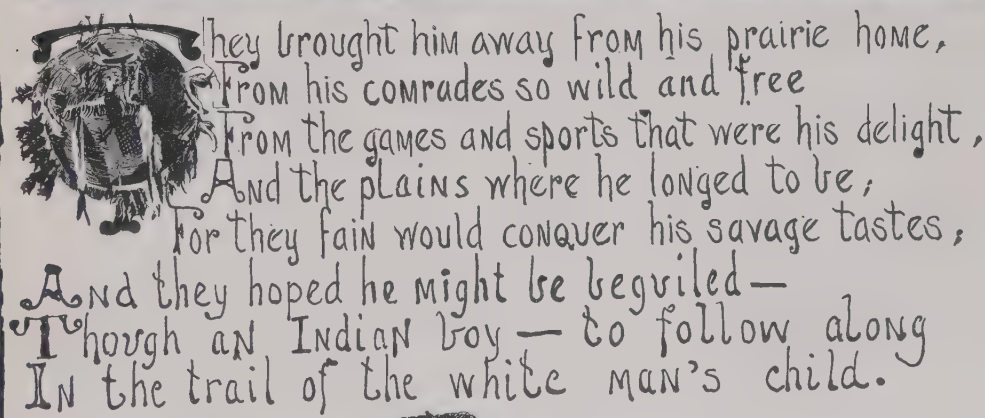 They brought him away from his prairie home,
From his comrades so wild and free
From the games and sports that were his delight,
And the plains where he longed to be;
For they fain would conquer his savage tastes;
And they hoped he might be beguiled—
Though an Indian boy — to follow along
In the trail of the white man's child.